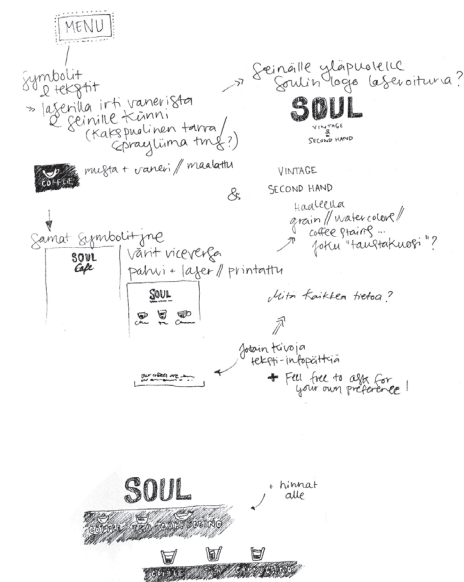 MENU
Symbolit
& tekstit
>> laserilla irti vanerista
& seinille kiinni
(kakspuolinen tarra/
sprayliima tms?)
COFFEE
musta + vaneri // maalattu
Samat symbolit jne
värit viceversa
pahvi + laser // printattu
SOUL
Cafe
SOUL
>> Seinälle yläpuolelle
Soulin logo laseroituna?
SOUL
VINTAGE
&
SECOND HAND
&
VINTAGE
SECOND HAND
Haaleella
grain // watercolors //
coffee stains ...
joku "taustakuosi"?
Mitä kaikkea tietoa?
Jotain kivoja
teksti-infopätkiä
+ Feel free to ask for
your own preference!
SOUL
COFFEE TEA
+ hinnat
alle
COFFEE TEA